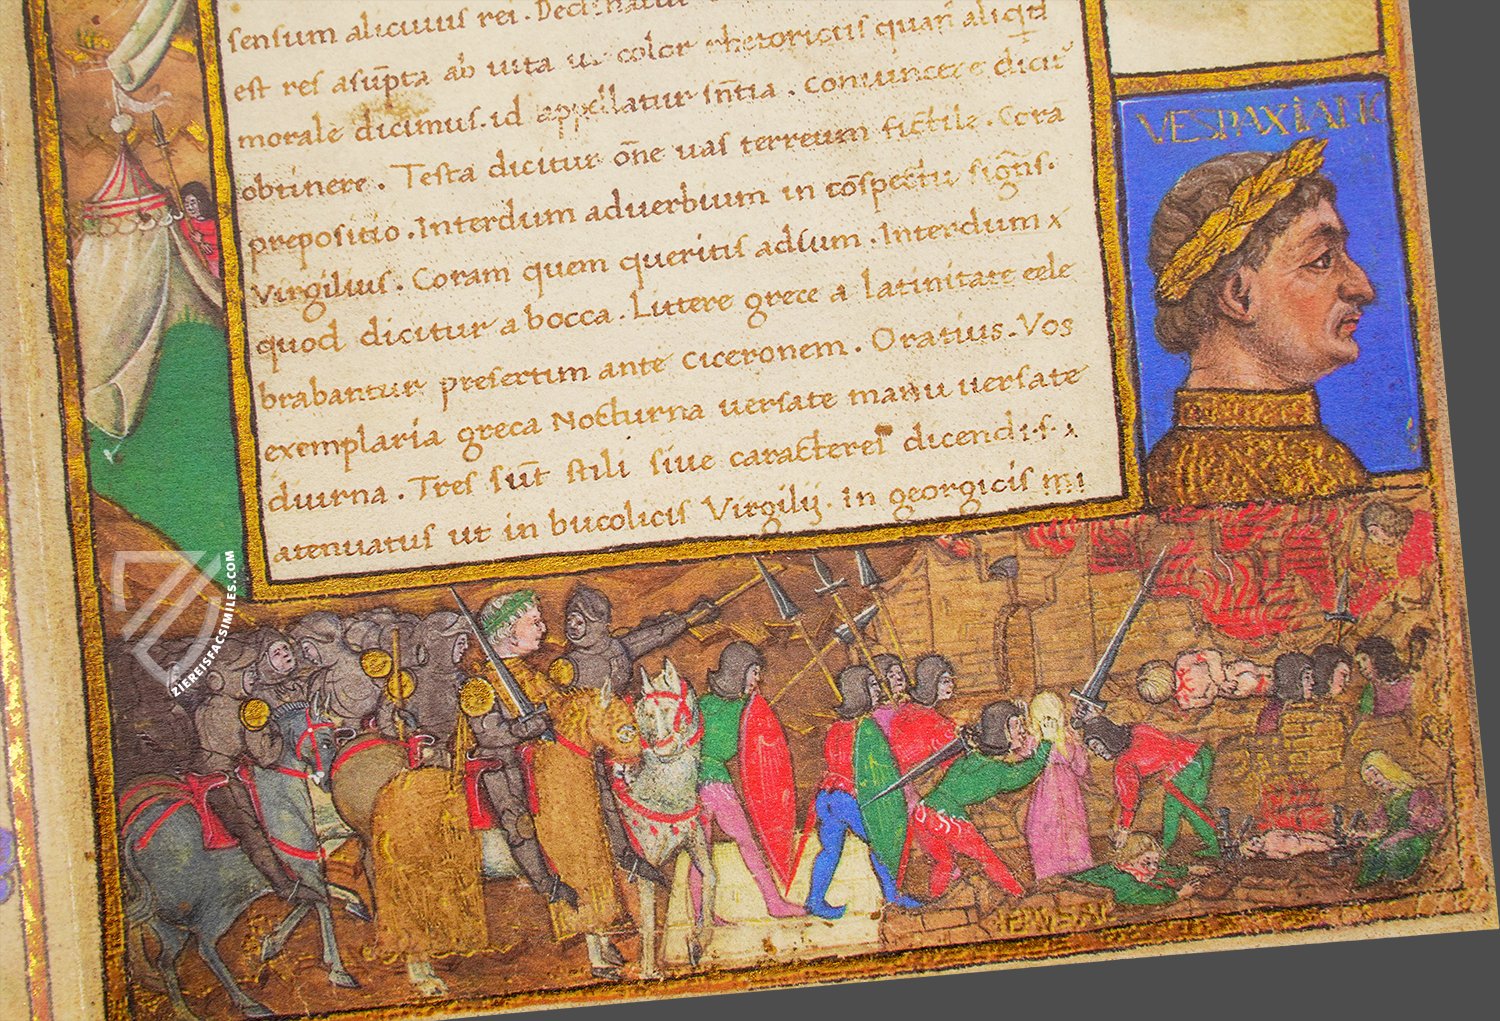 sensum alicuius rei. Declinatur
est res asūpta ab uita ut color rhetoricus quan̄ aliqid
morale dicimus. id appellatur sn̄tia. Conuincere dicit᷑
obtinere. Testa dicitur oн̄e uas terreum fictile. Corā
prepositio. Interdum aduerbium in cōspectu sign̄s.
Virgilius. Coram quem queritis adsum. Interdum x
quod dicitur a bocca. Littere grece a latinitate cele
brabantur presertim ante Ciceronem. Oratius. Vos
exemplaria greca Nocturna uersate manu uersate
diurna. Tres sūt stili siue caracteres dicendi. f x
atenuatus ut in bucolicis Virgilij. In georgicis mi
VESPAXIANO
IERVSAL
ZIEREISFACSIMILES.COM